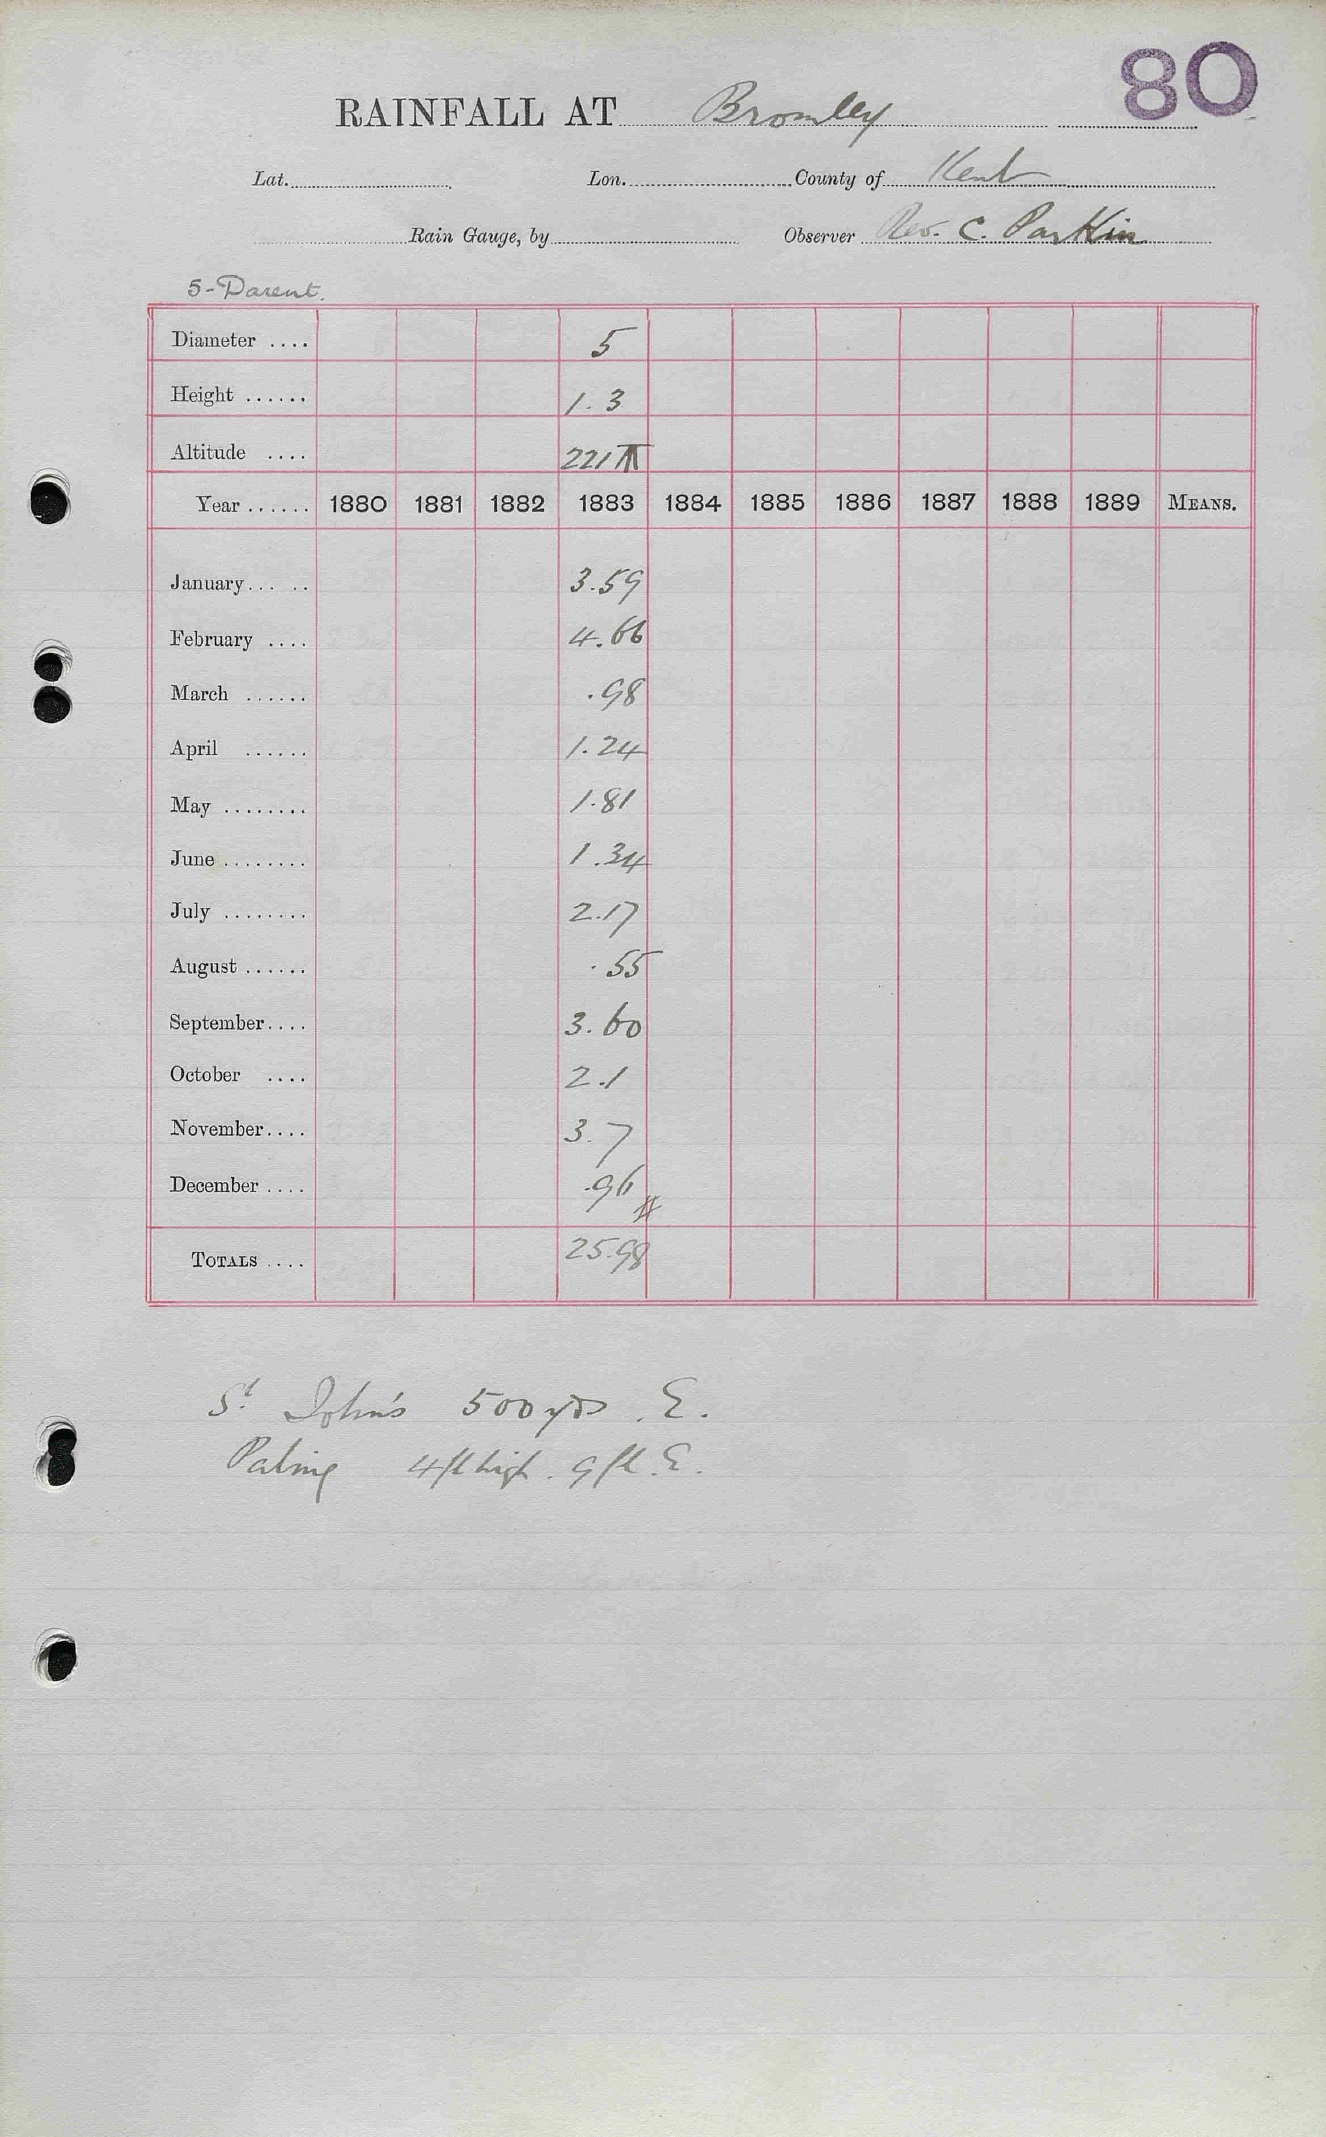 80
RAINFALL AT Bromley
Lat. Lon. County of Kent
Rain Gauge, by Observer Rev. C. Parkin
5-Parent.
Diameter .... 5
Height ...... 1.3
Altitude .... 221 T
Year ...... 1880 1881 1882 1883 1884 1885 1886 1887 1888 1889 MEANS.
January... .. 3.59
February .... 4.66
March ...... .98
April ...... 1.24
May ........ 1.81
June ........ 1.34
July ........ 2.17
August ...... .55
September.... 3.60
October .... 2.1
November.... 3.7
December .... .96
TOTALS .... 25.98
St John's 500 yds. E.
Paling 4 ft high. 9 ft. E.